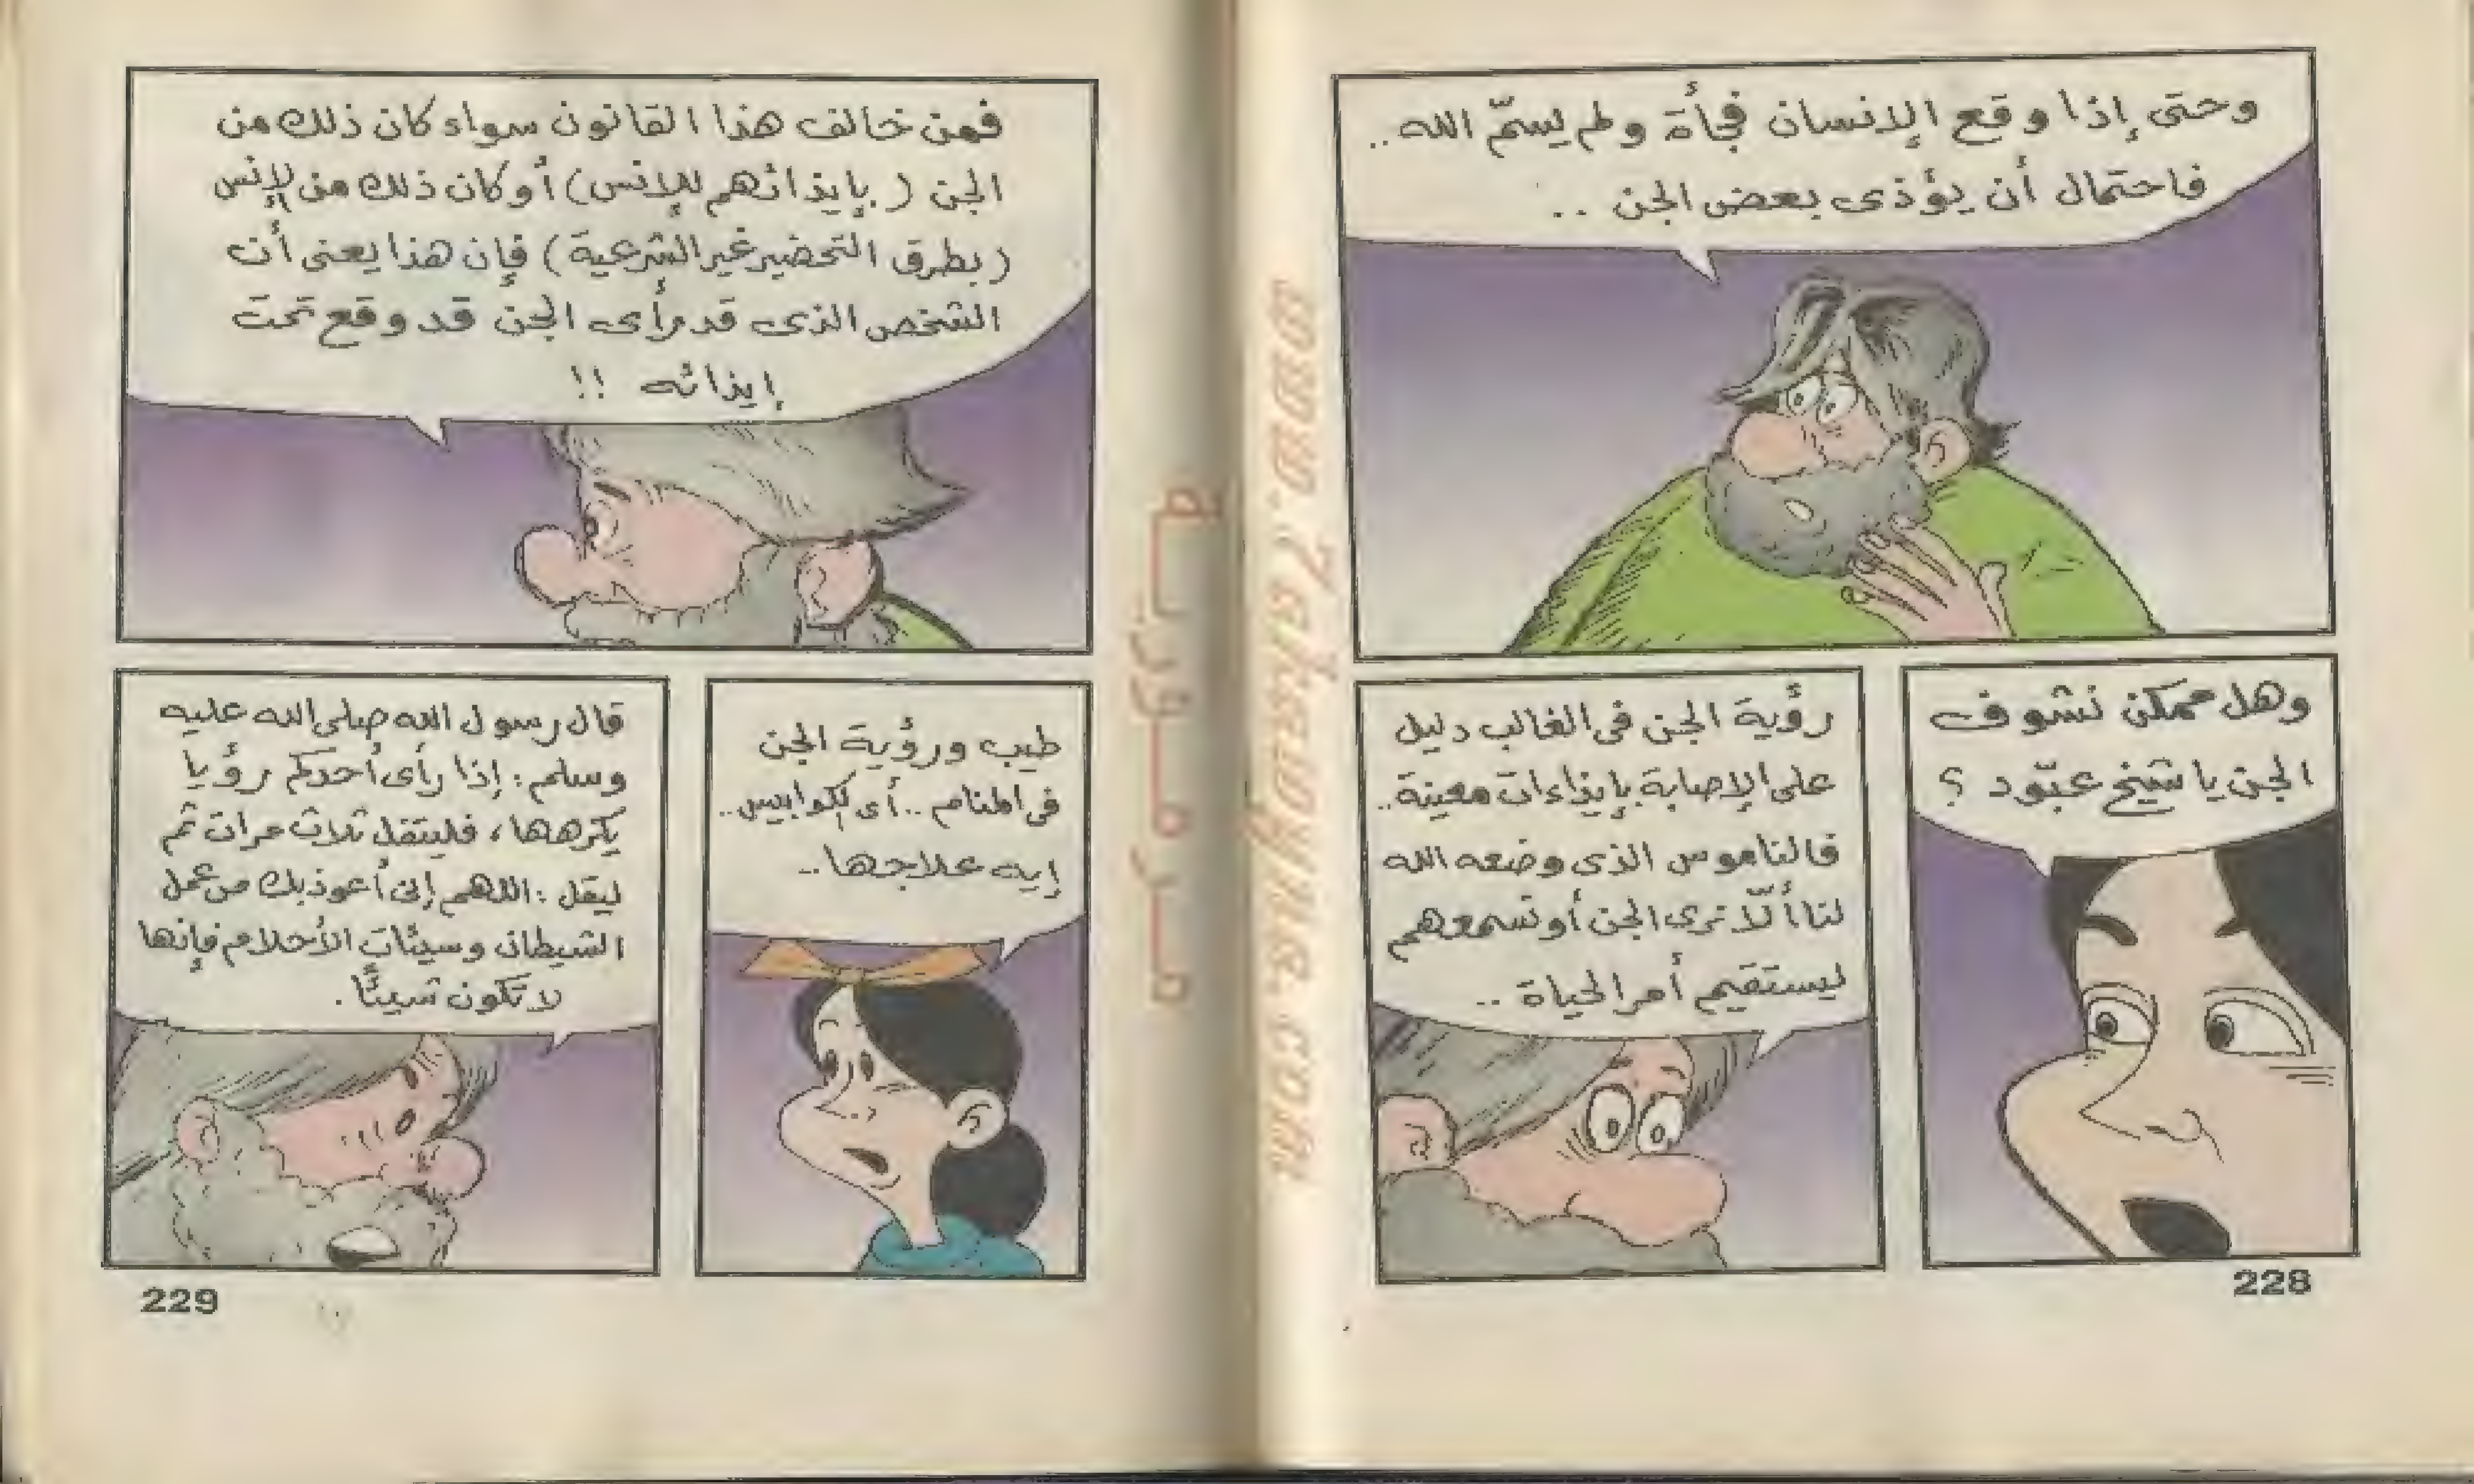 وحتى إذا وقع الإنسان فجأة ولم يسمّ الله..
فاحتمال أن يؤذى بعض الجن ..
وهل ممكن نشوف
الجن يا شيخ عبّود ؟
رؤية الجن فى الغالب دليل
على الإصابة بإيذاءات معينة..
فالناموس الذى وضعه الله
لنا ألّا نرى الجن أو نسمعهم
ليستقيم أمر الحياة ..
228
فمن خالف هذا القانون سواء كان ذلك من
الجن ( بإيذائهم للإنس ) أو كان ذلك من الإنس
( بطرق التحضير غير الشرعية ) فإن هذا يعنى أن
الشخص الذى قد رأى الجن قد وقع تحت
إيذائه !!
طيب ورؤية الجن
فى المنام .. أى الكوابيس ..
إيه علاجها ..
قال رسول الله صلى الله عليه
وسلم : إذا رأى أحدكم رؤيا
يكرهها ، فليتفل ثلاث مرات ثم
ليقل : اللهم إنى أعوذ بك من عمل
الشيطان وسيئات الأحلام فإنها
لا تكون شيئًا .
229
مرمورية